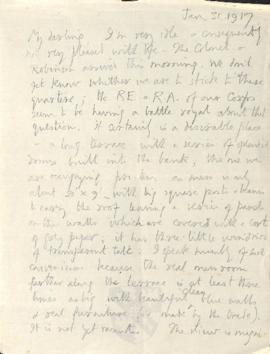 Jan. 31. 1917
My darling I'm very idle & consequently
not very pleased with life. The Colonel &
Robinson arrived this morning. We don't
yet know whether we are to stick to these
quarters; the R.E. & R.A. of our Corps
seem to be having a battle royal about this
question. It certainly is a desirable place
- a long terrace with a series of splendid
rooms built into the bank, the one we
are occupying pro. tem. as mess is only
about x 9' with big square posts & beams
to carry the roof leaving a series of panels
on the walls which are covered with a sort
of grey paper; it has three little windows
of transparent talc. I speak merely of its
conveniences because the real mess room
further along the terrace is at least three
times as big with beautiful clean blue walls
& real furniture (made by the
It is not yet vacant. The view is magni-